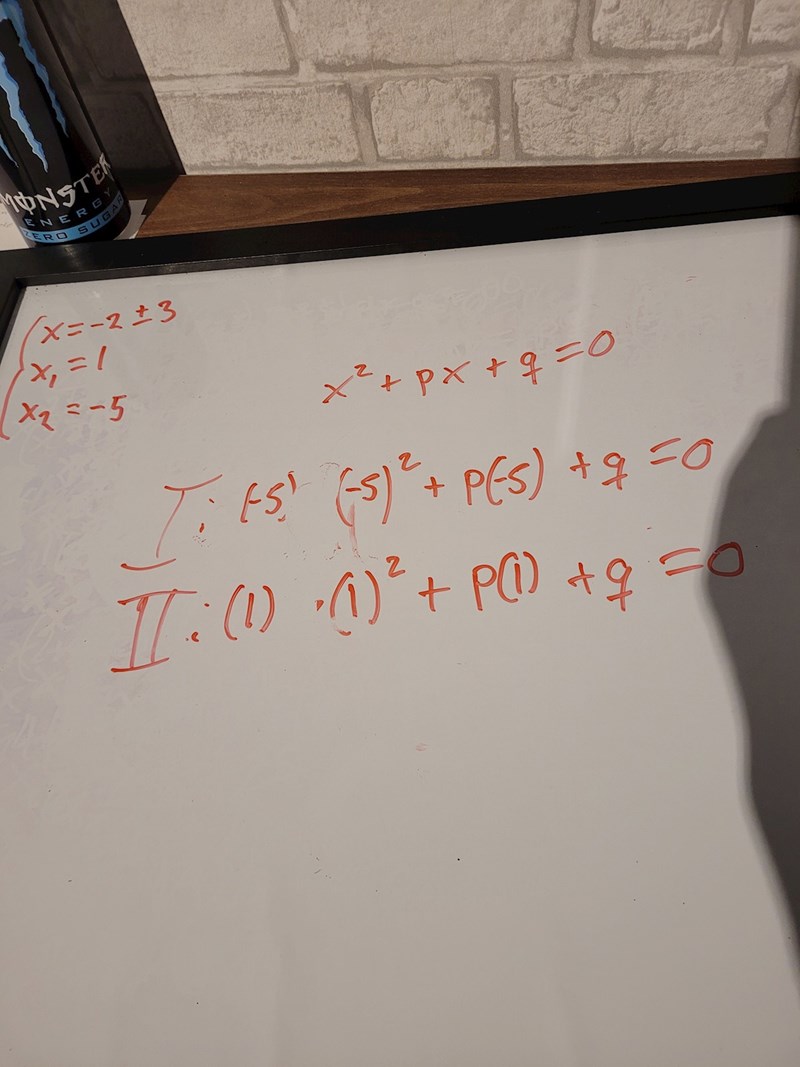 MONSTER
ENERGY
ZERO SUGAR
x = -2 ± 3
x₁ = 1
x₂ = -5
x² + px + q = 0
I: (-5) (-5)² + p(-5) + q = 0
II: (1) ·(1)² + p(1) + q = 0